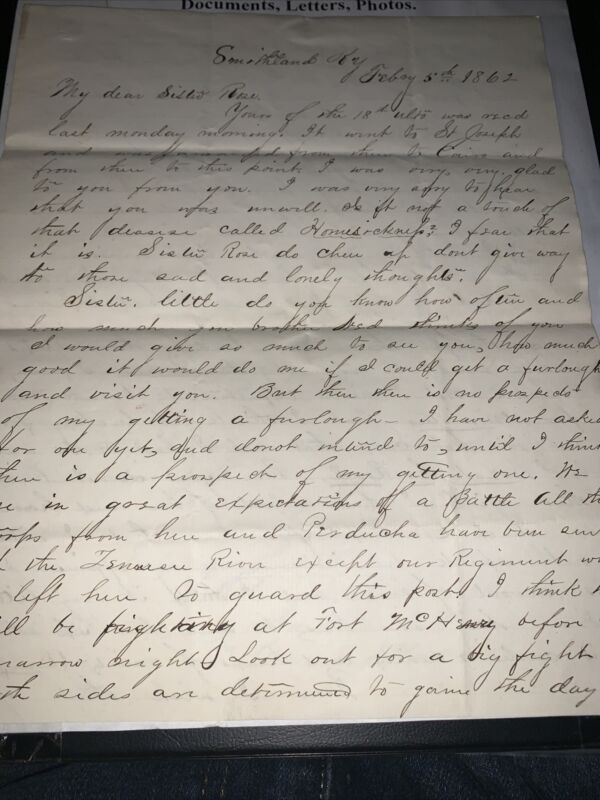 Documents, Letters, Photos.
Smithland Ky
Febry 5th 1862
My dear Sister Rose.
Yours of the 18th ulto was recd
last monday morning. It went to St Joseph
and was forwarded from there to Cairo and
from there to this point. I was very, very, glad
to you from you. I was very sory to hear
that you was unwell. Is it not a touch of
that deasease called Homesickness? I fear that
it is. Sister Rose do chear up dont give way
to those sad and lonely thoughts.
Sister. little do you know how often and
how much you brother thinks of you
I would give so much to see you, how much
good it would do me if I could get a furlough
and visit you. But then there is no prospects
of my getting a furlough - I have not asked
for one yet, and donot intend to, until I think
there is a prospect of my getting one. We
in great expectations of a Battle all the
from here and Perducha have been
the Tenessee River except our Regiment
left here to guard this post, I think
be fighting at Fort McHenry before
night. Look out for a big fight
sides are determined to gaine the day